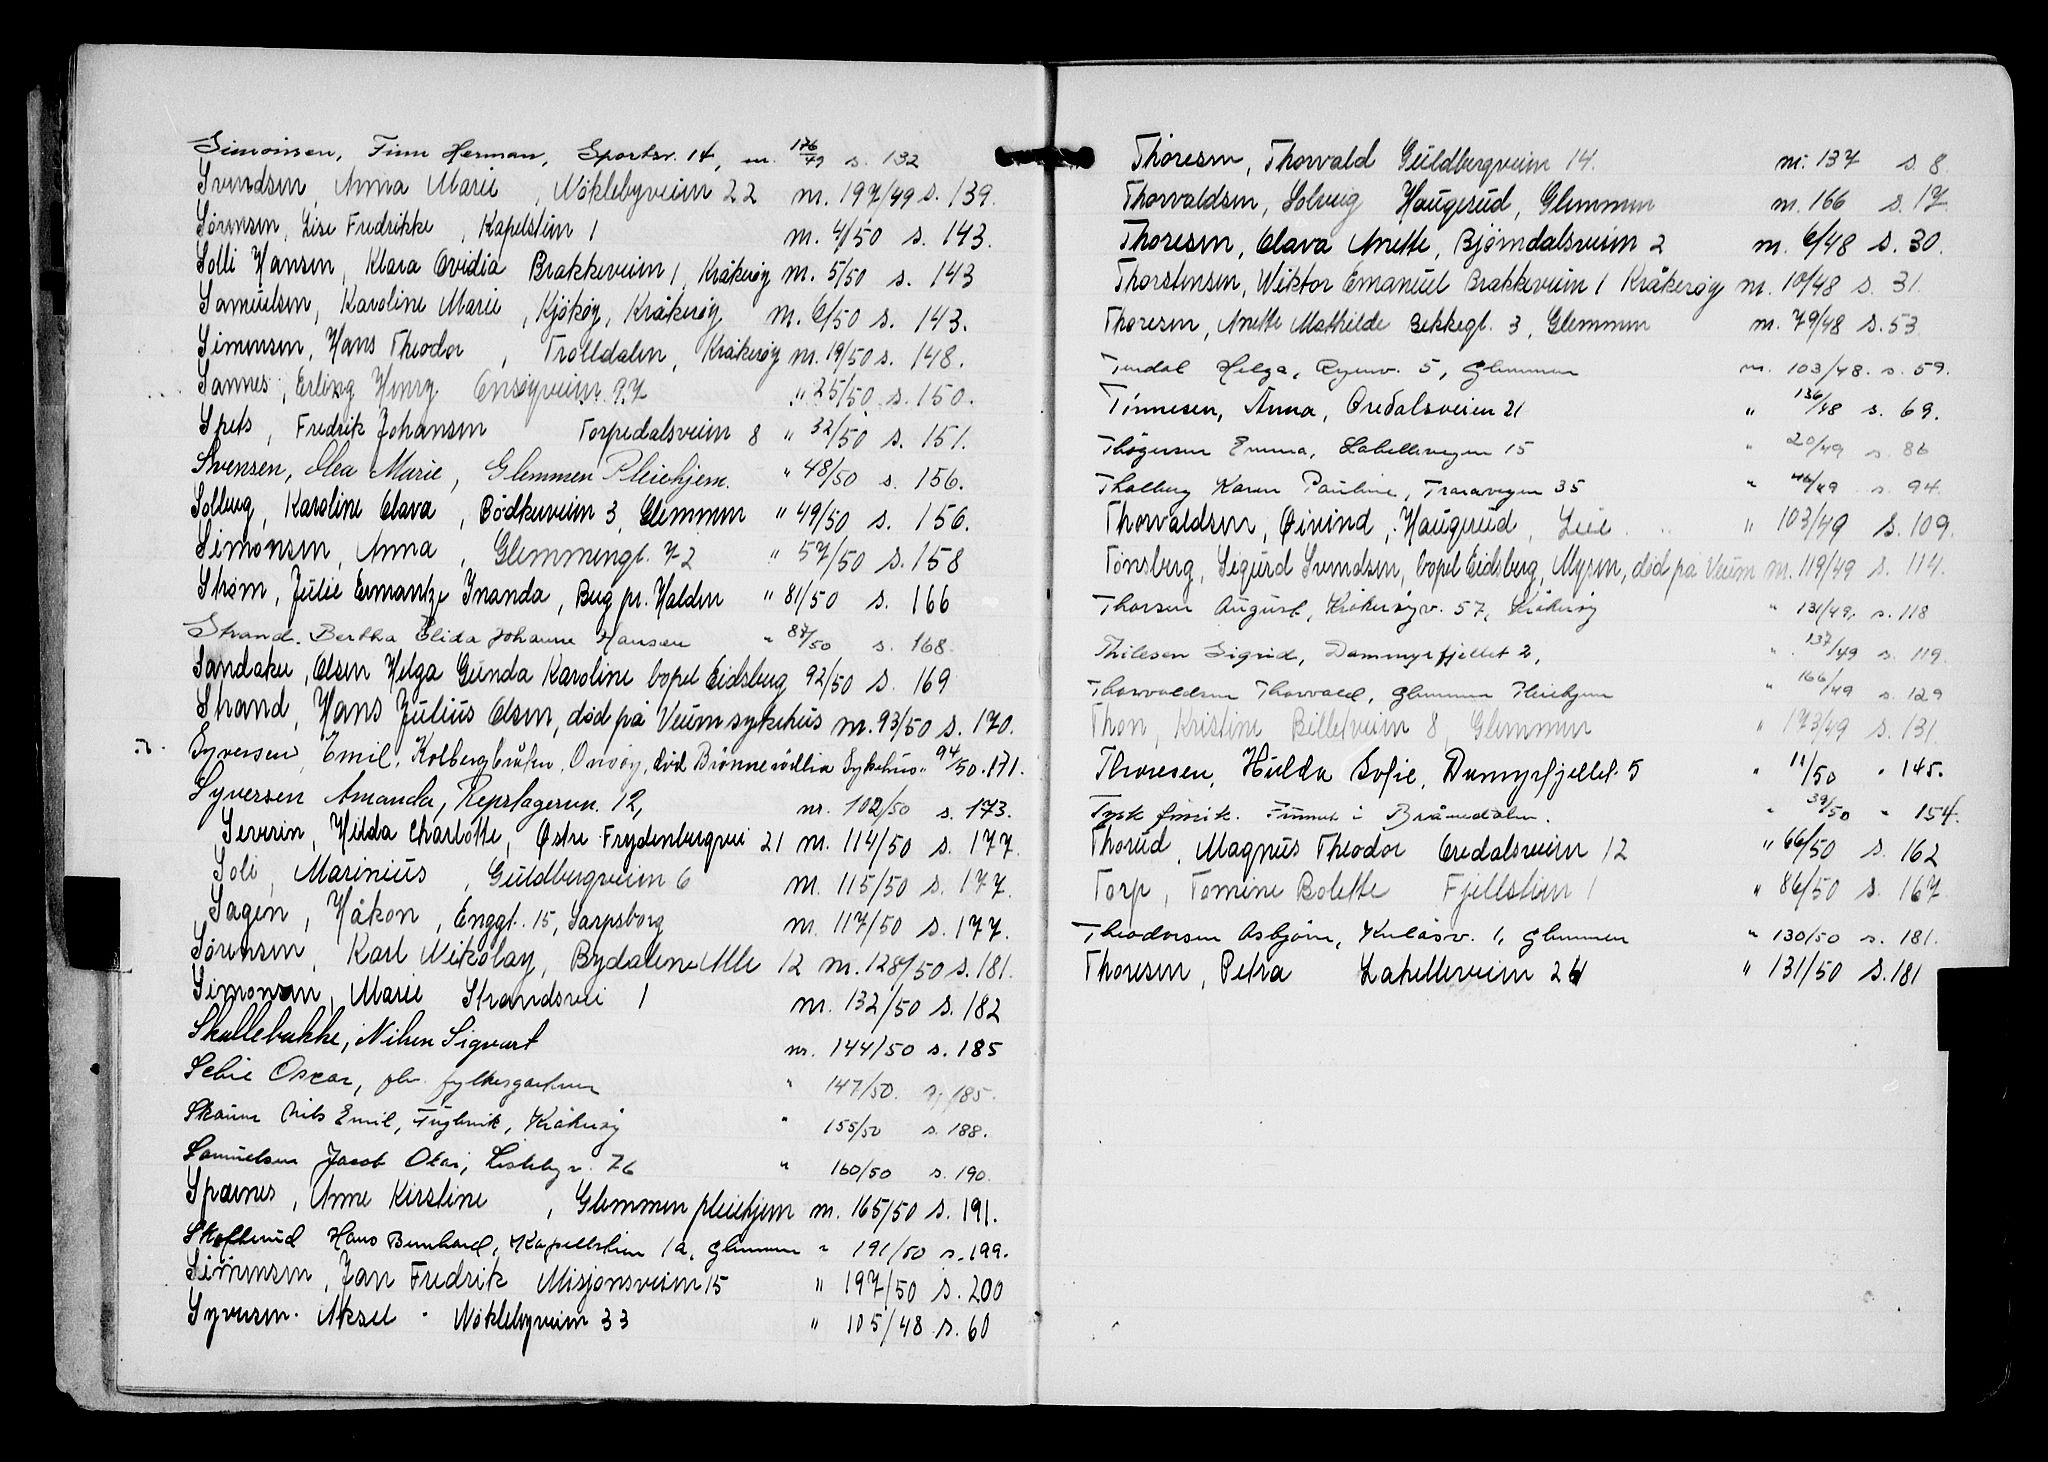 Simonsen, Finn Herman, Sportsv. 14, nr. 176/49 s. 132
Svendsen, Anna Marie, Nöklebyveien 22 nr. 197/49 s. 139.
Sörensen, Lise Fredrikke, Kapelstien 1 nr. 4/50 s. 143.
Solli Hansen, Klara Ovidia Brakkeveien 1, Kråkeröy nr. 5/50 s. 143
Samuelsen, Karoline Marie, Kjököy, Kråkeröy nr. 6/50 s. 143.
Simensen, Hans Theodor, Trolldalen, Kråkeröy nr. 19/50 s. 148.
Sannes, Erling Henry Onsöyveien 97 " 25/50 s. 150.
Spets, Fredrik Johansen Torpedalsveien 8 " 32/50 s. 151.
Svensen, Olea Marie, Glemmen Pleiehjem. " 48/50 s. 156.
Solberg, Karoline Olava, Bödkerveien 3, Glemmen " 49/50 s. 156.
Simonsen, Anna, Glemmengt. 72 " 57/50 s. 158
Ström, Julie Ermantze Inanda, Berg pr. Halden " 81/50 s. 166
Strand. Bertha Elida Johanne Hansen " 87/50 s. 168.
Sandaker, Olsen Helga Gunda Karoline bopel Eidsberg 92/50 s. 169
Strand, Hans Julius Olsen, död på Veum sykehus nr. 93/50 s. 170.
Syversen, Emil, Kolbergbråten, Onsöy, död Brönneröllia Sykehus " 94/50. 171.
Syversen Amanda, Repslagerv. 12, nr. 102/50 s. 173.
Severin, Hilda Charlotte, Østre Frydenbergvei 21 nr. 114/50 s. 177.
Soli, Marinius, Guldbergveien 6 nr. 115/50 s. 177.
Sagen, Håkon, Enggt. 15, Sarpsborg nr. 117/50 s. 177.
Sörensen, Karl Nikolay, Bydalen Alle 12 nr. 128/50 s. 181.
Simonsen, Marie Strandsvei 1 nr. 132/50 s. 182
Skallebakke, Nilsen Sigvart nr. 144/50 s. 185
Selie Oscar, fylkesgartner " 147/50. s. 185.
Skaum Nils Emil, Fuglevik, Kråkeröy " 155/50 s. 188.
Samuelsen Jacob Olai, Lislebyv. 76 " 160/50 s. 190.
Spærnes, Anne Kirstine, Glemmen pleiehjem nr. 165/50 s. 191.
Skofterud Hans Bernhard, Kapellstien 1a, Glemmen " 191/50 s. 199.
Simensen, Jan Fredrik Misjonsveien 15 " 197/50 s. 200
Syversen. Aksel. Nöklebyveien 33 " 105/48 s. 60
Thoresen, Thorvald Guldbergveien 14. nr. 137 s. 8.
Thorvaldsen, Solveig Haugerud, Glemmen nr. 166 s. 17.
Thoresen, Olava Anette, Björndalsveien 2 nr. 6/48 s. 30.
Thorstensen, Wiktor Emanuel Brakkeveien 1 Kråkeröy nr. 10/48 s. 31.
Thoresen, Anette Mathilde Bekkegt. 3, Glemmen nr. 79/48 s. 53
Tindal Helga, Ryenv. 5, Glemmen nr. 103/48. s. 59.
Tinnesen, Anna, Oredalsveien 21 " 136/48 s. 69.
Thögersen Emma, Labelleveyen 15 " 20/49 s. 86
Thalberg Karen Pauline, Traraveyen 35 " 44/49 s. 94
Thorvaldsen, Öivind, Haugerud, Lie " 103/49 s. 109.
Tönsberg, Sigurd Svendsen, bopel Eidsberg, Mysen, död på Veum nr. 119/49 s. 114.
Thorsen August, Kråkeröyv. 57, Kråkeröy " 131/49, s. 118
Thilesen Sigrid, Dammyrfjellet 2, " 137/49 s. 119.
Thorvaldsen Thorvald, Glemmen Pleiehjem " 166/49 s. 129
Thon, Kristine Billetveien 8, Glemmen " 173/49 s. 131.
Thoresen, Hulda Sofie, Damyrfjellet 5 " 11/50 " 145.
Tysk finsk. Funnet i Brånedalen. " 39/50 " 154.
Thorud, Magnus Theodor Oredalsveien 12 " 66/50 s. 162
Torp, Tomine Bolette Fjellstien 1 " 86/50 s. 167
Theodorsen Asbjörn, Knlåsv. 1, Glemmen " 130/50 s. 181.
Thoresen, Petra Labelleveien 24 " 131/50 s. 181